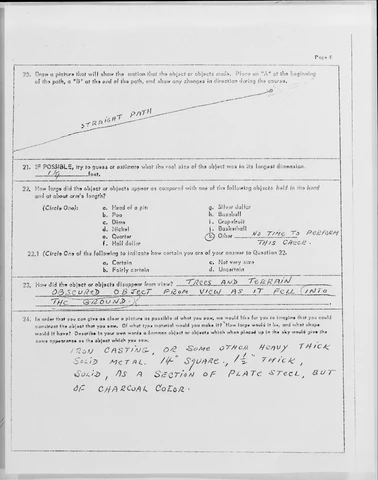 Page 6
20. Draw a picture that will show the motion that the object or objects made. Place an "A" at the beginning
of the path, a "B" at the end of the path, and show any changes in direction during the course.
STRAIGHT PATH
21. IF POSSIBLE, try to guess or estimate what the real size of the object was in its longest dimension.
feet.
22. How large did the object or objects appear as compared with one of the following objects held in the hand
and at about arm's length?
(Circle One):
a. Head of a pin
b. Pea
c. Dime
d. Nickel
e. Quarter
f. Half dollar
g. Silver dollar
h. Baseball
i. Grapefruit
j. Basketball
k. Other NO TIME TO PERFORM
THIS CHECK.
22.1 (Circle One of the following to indicate how certain you are of your answer to Question 22.
a. Certain
b. Fairly certain
c. Not very sure
d. Uncertain
23. How did the object or objects disappear from view? TREES AND TERRAIN
OBSCURED OBJECT FROM VIEW AS IT FELL INTO
THE GROUND.
24. In order that you can give as clear a picture as possible of what you saw, we would like for you to imagine that you could
construct the object that you saw. Of what type material would you make it? How large would it be, and what shape
would it have? Describe in your own words a common object or objects which when placed up in the sky would give the
same appearance as the object which you saw.
IRON CASTING, OR SOME OTHER HEAVY THICK
SOLID METAL. 14" SQUARE, 1½" THICK,
SOLID, AS A SECTION OF PLATE STEEL, BUT
OF CHARCOAL COLOR.